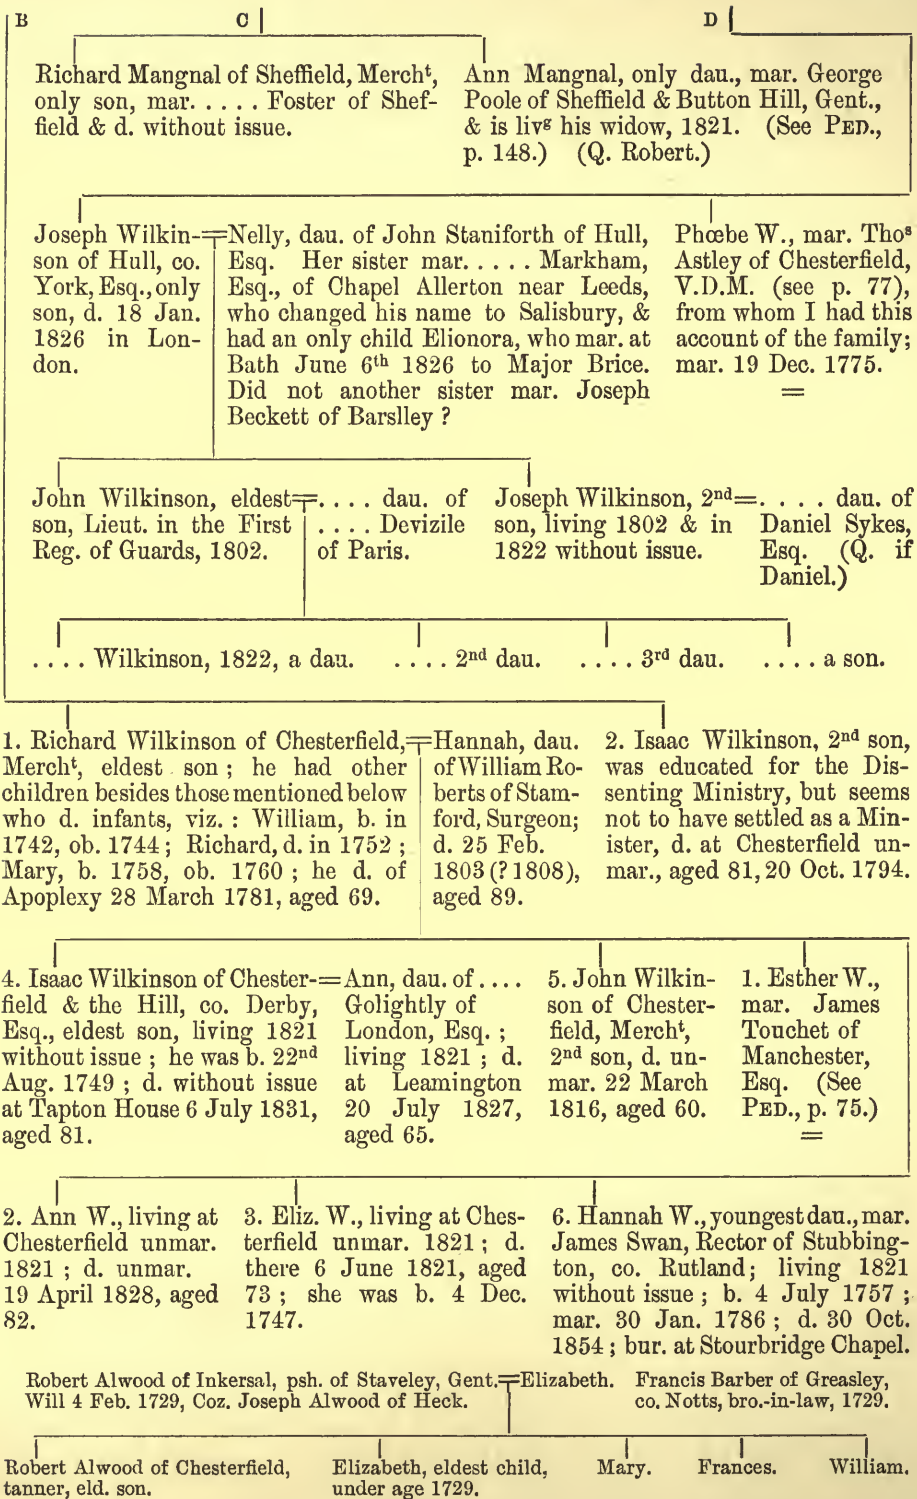 B
C
D
Richard Mangnal of Sheffield, Merchᵗ,
only son, mar. . . . . . Foster of Shef-
field & d. without issue.
Ann Mangnal, only dau., mar. George
Poole of Sheffield & Button Hill, Gent.,
& is livᵍ his widow, 1821. (See PED.,
p. 148.) (Q. Robert.)
Joseph Wilkin-=
son of Hull, co.
York, Esq., only
son, d. 18 Jan.
1826 in Lon-
don.
Nelly, dau. of John Staniforth of Hull,
Esq. Her sister mar. . . . . . Markham,
Esq., of Chapel Allerton near Leeds,
who changed his name to Salisbury, &
had an only child Elionora, who mar. at
Bath June 6ᵗʰ 1826 to Major Brice.
Did not another sister mar. Joseph
Beckett of Barslley ?
Phœbe W., mar. Thoˢ
Astley of Chesterfield,
V.D.M. (see p. 77),
from whom I had this
account of the family;
mar. 19 Dec. 1775.
=
John Wilkinson, eldest=
son, Lieut. in the First
Reg. of Guards, 1802.
. . . . dau. of
. . . . Devizile
of Paris.
Joseph Wilkinson, 2ⁿᵈ=
son, living 1802 & in
1822 without issue.
. . . . dau. of
Daniel Sykes,
Esq. (Q. if
Daniel.)
. . . . Wilkinson, 1822, a dau.
. . . . 2ⁿᵈ dau.
. . . . 3ʳᵈ dau.
. . . . a son.
1. Richard Wilkinson of Chesterfield,=
Merchᵗ, eldest son ; he had other
children besides those mentioned below
who d. infants, viz. : William, b. in
1742, ob. 1744 ; Richard, d. in 1752 ;
Mary, b. 1758, ob. 1760 ; he d. of
Apoplexy 28 March 1781, aged 69.
Hannah, dau.
of William Ro-
berts of Stam-
ford, Surgeon;
d. 25 Feb.
1803 (? 1808),
aged 89.
2. Isaac Wilkinson, 2ⁿᵈ son,
was educated for the Dis-
senting Ministry, but seems
not to have settled as a Min-
ister, d. at Chesterfield un-
mar., aged 81, 20 Oct. 1794.
4. Isaac Wilkinson of Chester-=
field & the Hill, co. Derby,
Esq., eldest son, living 1821
without issue ; he was b. 22ⁿᵈ
Aug. 1749 ; d. without issue
at Tapton House 6 July 1831,
aged 81.
Ann, dau. of . . . .
Golightly of
London, Esq. ;
living 1821 ; d.
at Leamington
20 July 1827,
aged 65.
5. John Wilkin-
son of Chester-
field, Merchᵗ,
2ⁿᵈ son, d. un-
mar. 22 March
1816, aged 60.
1. Esther W.,
mar. James
Touchet of
Manchester,
Esq. (See
PED., p. 75.)
=
2. Ann W., living at
Chesterfield unmar.
1821 ; d. unmar.
19 April 1828, aged
82.
3. Eliz. W., living at Ches-
terfield unmar. 1821 ; d.
there 6 June 1821, aged
73 ; she was b. 4 Dec.
1747.
6. Hannah W., youngest dau., mar.
James Swan, Rector of Stubbing-
ton, co. Rutland; living 1821
without issue ; b. 4 July 1757 ;
mar. 30 Jan. 1786 ; d. 30 Oct.
1854 ; bur. at Stourbridge Chapel.
Robert Alwood of Inkersal, psh. of Staveley, Gent.=Elizabeth.
Will 4 Feb. 1729, Coz. Joseph Alwood of Heck.
Francis Barber of Greasley,
co. Notts, bro.-in-law, 1729.
Robert Alwood of Chesterfield,
tanner, eld. son.
Elizabeth, eldest child,
under age 1729.
Mary.
Frances.
William.